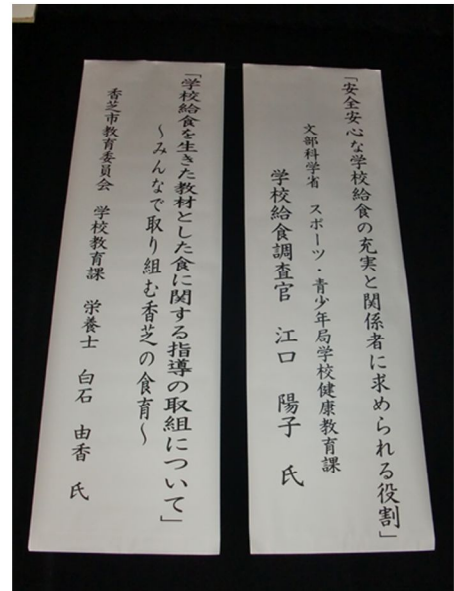 「安全安心な学校給食の充実と関係者に求められる役割」
文部科学省 スポーツ・青少年局学校健康教育課
学校給食調査官 江口 陽子 氏
「学校給食を生きた教材とした食に関する指導の取組について」
～みんなで取り組む香芝の食育～
香芝市教育委員会 学校教育課 栄養士 白石 由香 氏